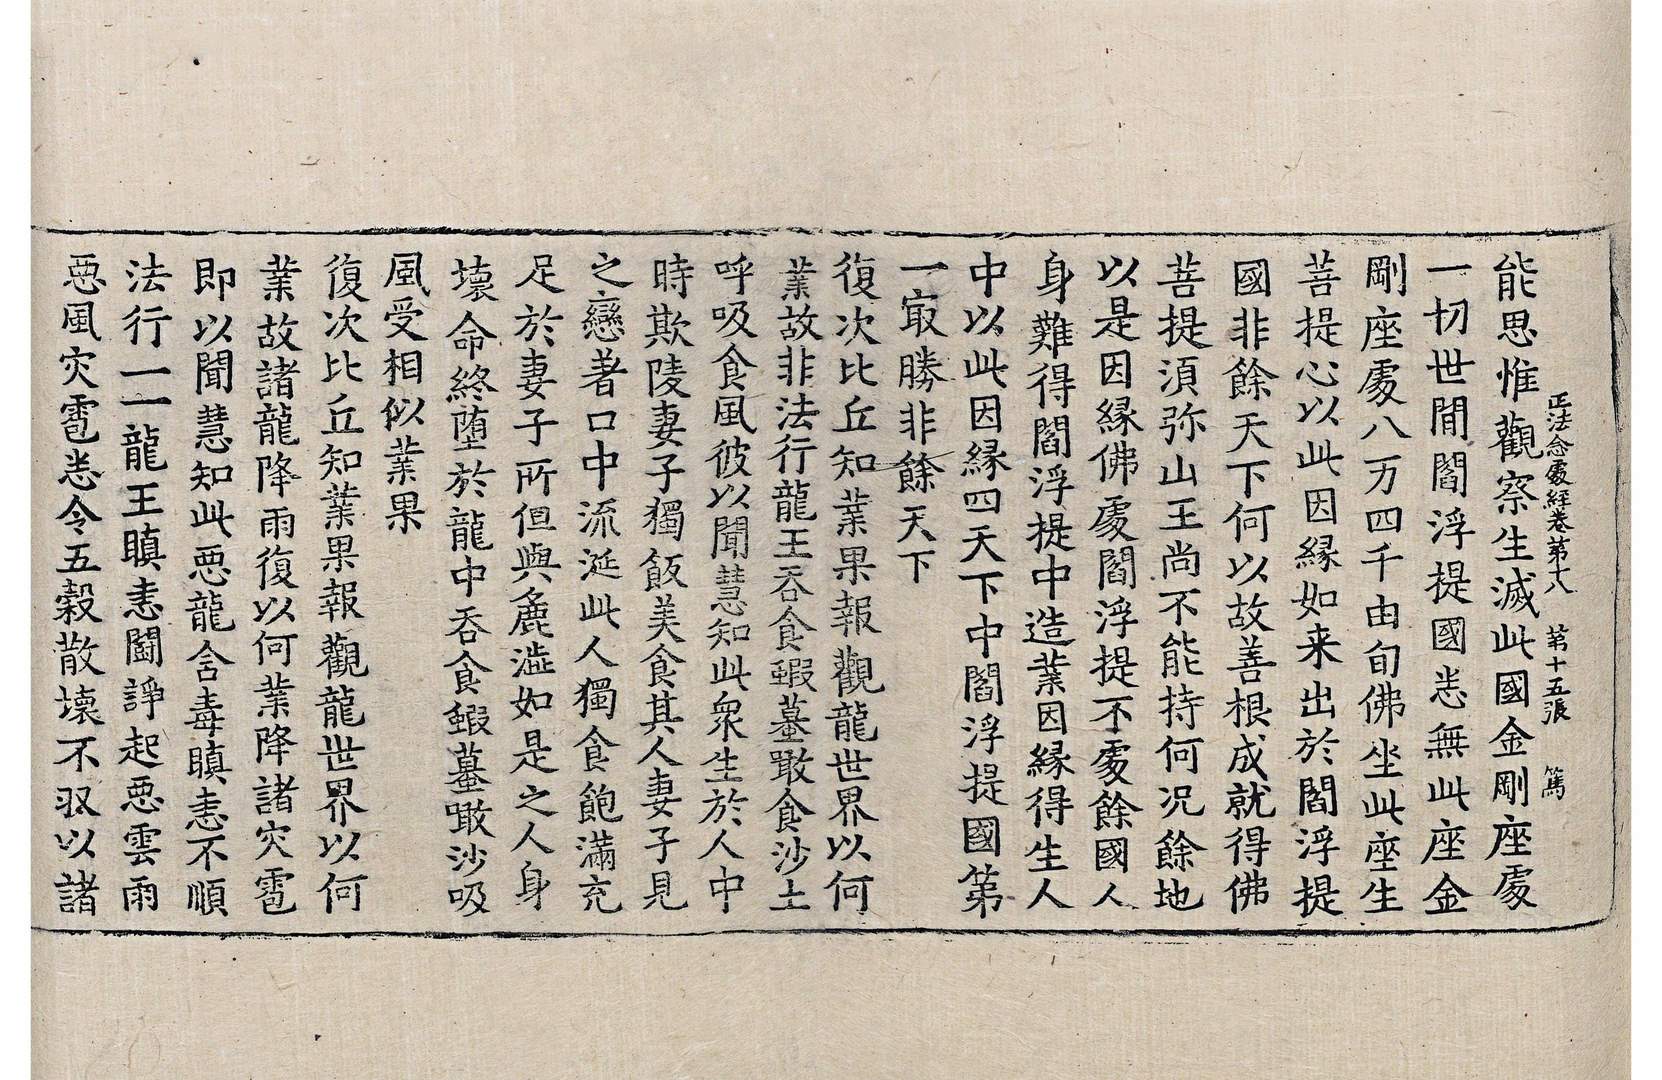 正法念處經卷第十八　第十五張　篤
能思惟觀察生滅此國金剛座處
一切世間閻浮提國悉無此座金
剛座處八万四千由旬佛坐此座生
菩提心以此因縁如来出於閻浮提
國非餘天下何以故善根成就得佛
菩提湏弥山王尚不能持何况餘地
以是因縁佛處閻浮提不處餘國人
身難得閻浮提中造業因縁得生人
中以此因縁四天下中閻浮提國第
一㝡勝非餘天下
復次比丘知業果報觀龍世界以何
業故非法行龍王吞食蝦蟇噉食沙土
呼吸食風彼以聞慧知此衆生於人中
時欺陵妻子獨飯美食其人妻子見
之戀著口中流涎此人獨食飽滿充
足於妻子所但與麁澁如是之人身
壞命終墮於龍中吞食蝦蟇噉沙吸
風受相似業果
復次比丘知業果報觀龍世界以何
業故諸龍降雨復以何業降諸灾雹
即以聞慧知此惡龍含毒瞋恚不順
法行一一龍王瞋恚闘諍起惡雲雨
惡風灾雹悉令五穀散壞不収以諸